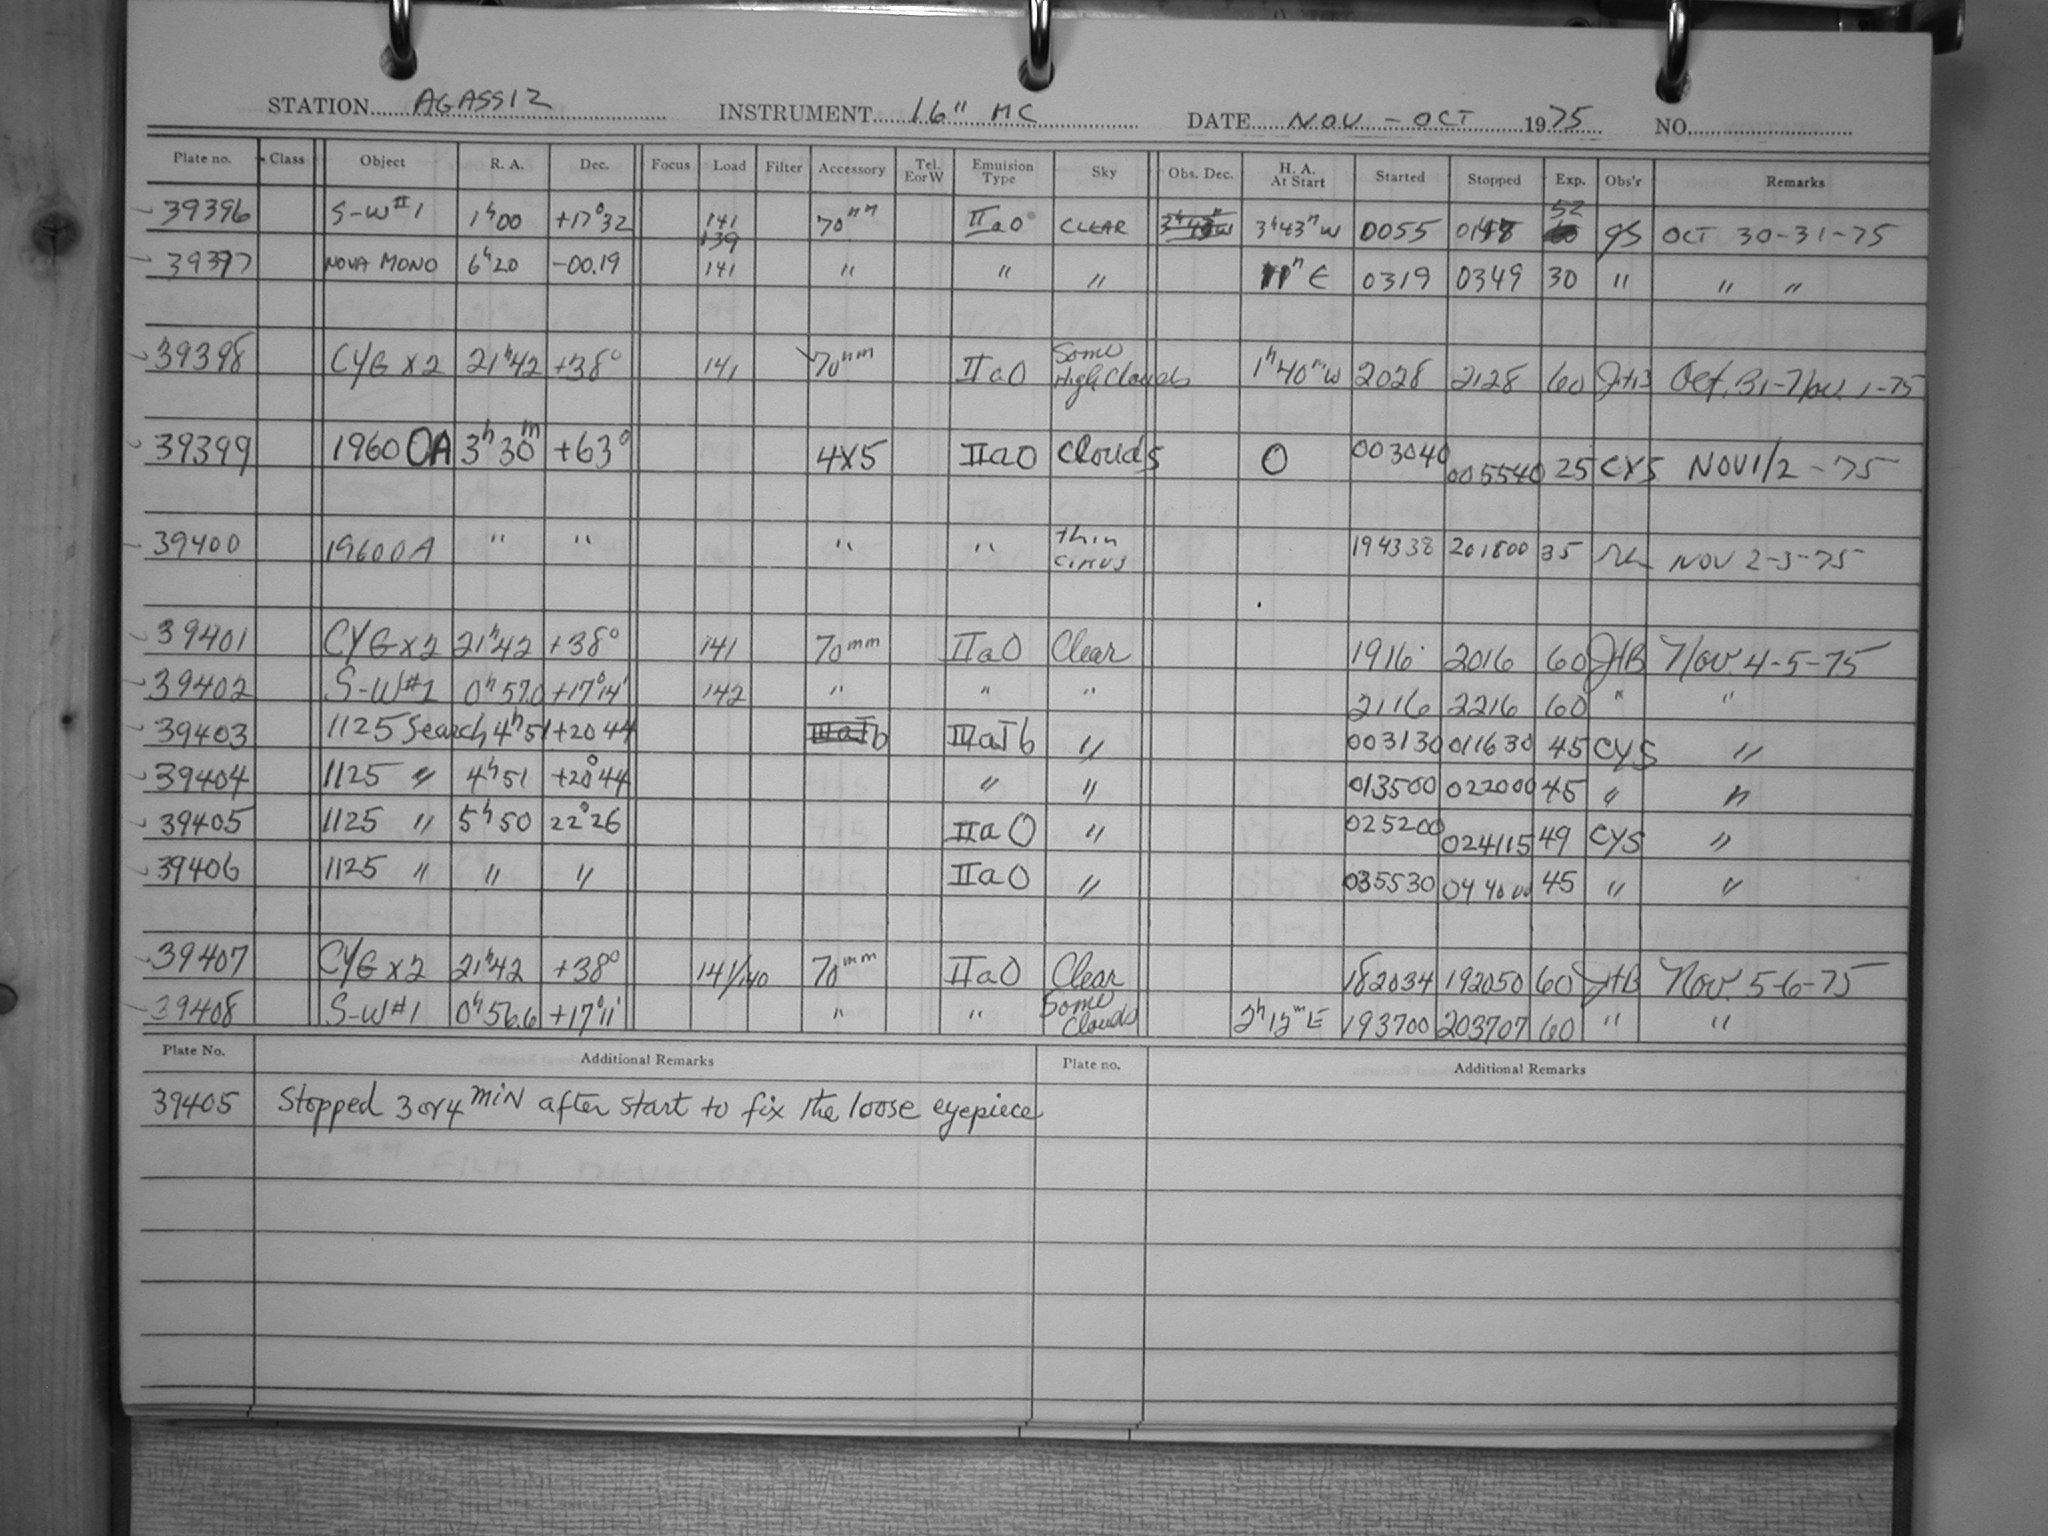 STATION AGASSIZ INSTRUMENT 16" MC DATE NOV - OCT 1975 NO.
Plate no. Class Object R. A. Dec. Focus Load Filter Accessory Tel. E or W Emulsion Type Sky Obs. Dec. H. A. At Start Started Stopped Exp. Obs'r Remarks
39396 S-W#1 1h00 +17°32 141 139 70mm IIaO CLEAR 3h43m W 0055 52 gS OCT 30-31-75
39397 NOVA MONO 6h20 -00.19 141 " " " E 0319 0349 30 " " "
39398 CYG X2 21h42 +38° 141 70mm IIaO Some High Clouds 1h40m W 2028 2128 60 JHB Oct. 31-Nov. 1-75
39399 1960 OA 3h30m +63° 4X5 IIaO Clouds 0 003040 005540 25 CYS NOV 1/2-75
39400 1960 OA " " " " thin cirrus 194338 201800 35 NOV 2-3-75
39401 CYG X2 21h42 +38° 141 70mm IIaO Clear 1916 2016 60 JHB Nov. 4-5-75
39402 S-W#1 0h57.0 +17°14' 142 " " " 2116 2216 60 " "
39403 1125 Search 4h51 +20 44 IIIaJ b " 003130 011630 45 CYS "
39404 1125 " 4h51 +20°44 " " 013500 022000 45 " "
39405 1125 " 5h50 22°26 IIaO " 025200 024115 49 CYS "
39406 1125 " " " IIaO " 035530 044000 45 " "
39407 CYG X2 21h42 +38° 141/140 70mm IIaO Clear 182034 192050 60 JHB Nov. 5-6-75
39408 S-W#1 0h56.6 +17°11' " " Some Clouds 2h12m E 193700 203707 60 " "
Plate No. Additional Remarks Plate no. Additional Remarks
39405 Stopped 3 or 4 min after start to fix the loose eyepiece